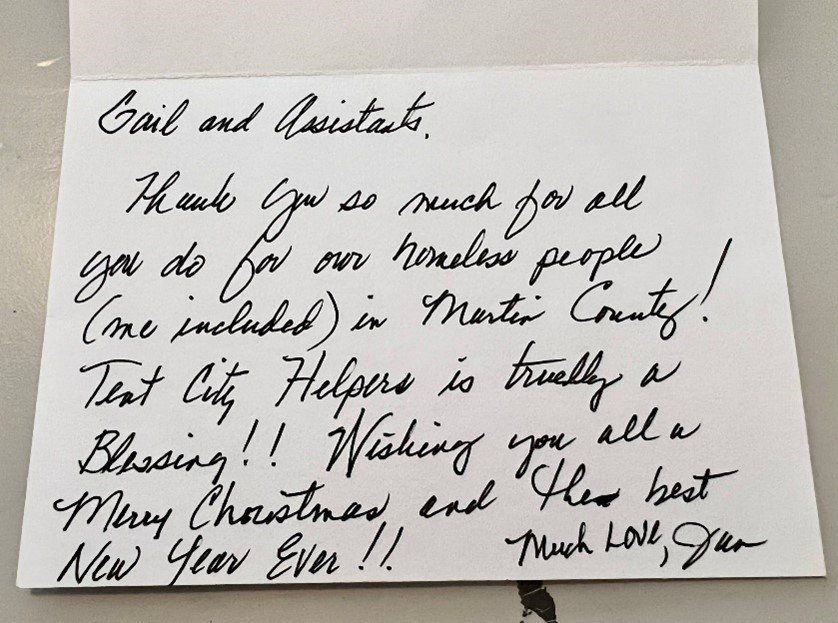 Gail and Assistants.
Thank you so much for all
you do for our homeless people
(me included) in Martin County!
Tent City Helpers is truelly a
Blessing!! Wishing you all a
Merry Christmas and the best
New Year Ever!! Much Love,